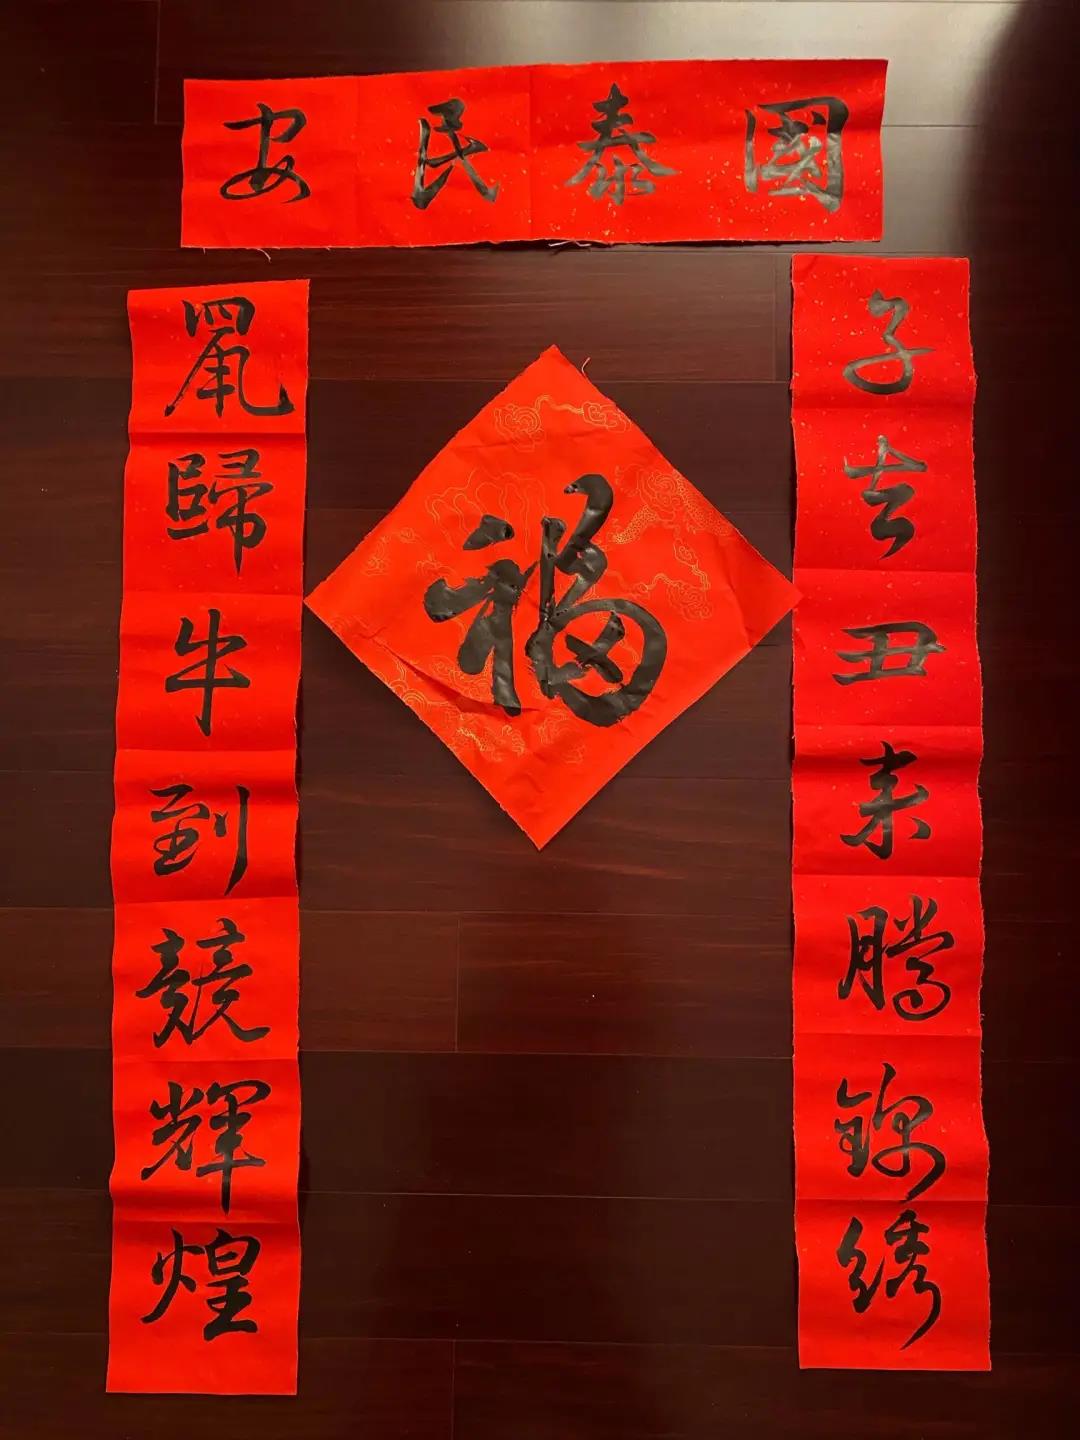 國泰民安
子去丑来騰錦綉
鼠歸牛到競輝煌
福